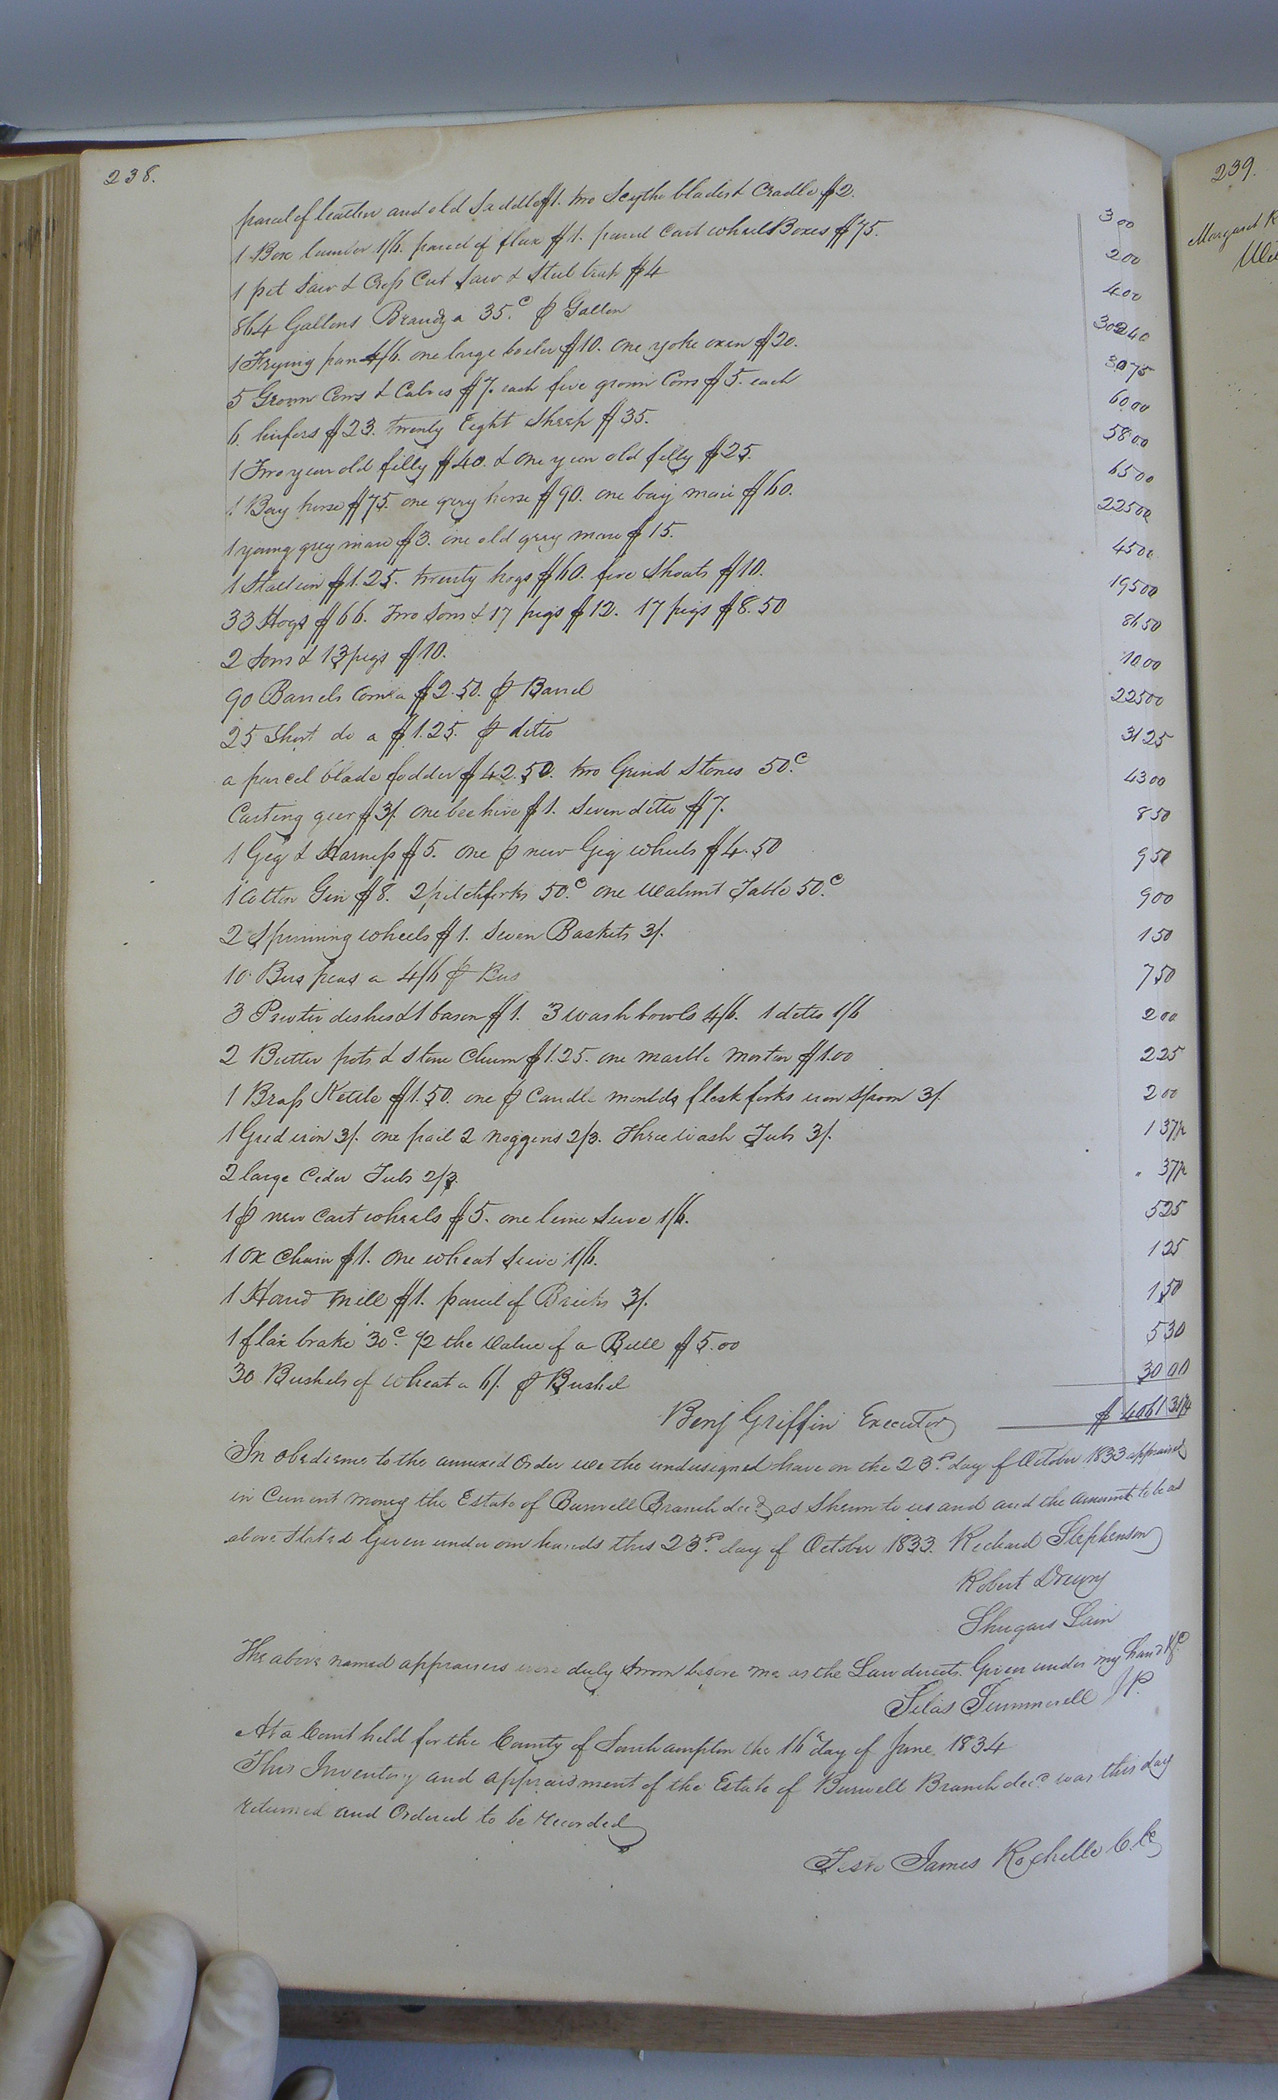 238.
parcel of leather and old Saddle $1. two Scythe blades & Cradle $2. 3 00
1 Box lumber 1/6. parcel of flax $1. parcel Cart wheel Boxes $.75. 2 00
1 pet Saw & Cross Cut Saw & Steel trap $4 4 00
864 Gallons Brandy a 35.c ⅌ Gallon 302 40
1 Frying pan 4/6. one large boiler $10. one yoke oxen $20. 30 75
5 Grown Cows & Calves $7. each five grown Cows $5. each 60 00
6 heifers $23. twenty Eight Sheep $35. 58 00
1 Two year old filly $40. & one year old filly $25. 65 00
1 Bay horse $75. one grey horse $90. one bay mare $60. 225 00
1 young grey mare $3. one old gray mare $15. 45 00
1 Stallion $1.25. twenty hogs $60. five Shoats $10. 195 00
33 Hogs $66. Two Sows & 17 pigs $12. 17 pigs $8.50 86 50
2 Sows & 13 pigs $10. 10 00
90 Barrels Corn a $2.50. ⅌ Barrel 225 00
25 Short do a $1.25. ⅌ ditto 31 25
a parcel blade fodder $42.50. two Grind Stones 50.c 43 00
Casting geer $3/. one bee hive $1. Seven ditto $7. 8 50
1 Gig & Harness $5. one p new Gig wheels $4.50 9 50
1 Cotton Gin $8. 2 pitchforks 50.c one Walnut Table 50.c 9 00
2 Spinning wheels $1. Seven Baskets 3/. 1 50
10 Bus peas a 4/6 ⅌ Bus 7 50
3 Pewter dishes & 1 bason $1. 3 wash bowls 4/6. 1 ditto 1/6 2 00
2 Butter pots & Stone Churn $1.25. one marble Mortar $1.00 2 25
1 Brass Kettle $1.50. one p Candle moulds flesk forks iron Spoon 3/. 2 00
1 Grid iron 3/. one pail 2 noggins 2/3. Three wash Tubs 3/. 1 37½
2 large Ceder Tubs 2/3. " 37½
1 p new Cart wheels $5. one lime Seive 1/6. 5 25
1 ox Chain $1. one wheat Seive 1/6. 1 25
1 Hand Mill $1. parcel of Bricks 3/. 1 50
1 flax brake 30c. ½ the Value of a Bull $5.00 5 30
30 Bushels of wheat a 6/. ⅌ Bushel 30 00
Benj Griffin Executor $ 4061 31¼
In obedience to the annexed Order we the undersigned have on the 23rd. day of October 1833 appraised
in Current Money the Estate of Burwell Branch decd. as Shewn to us and and the amount to be as
above Stated Given under our hands this 23rd. day of October 1833. Richard Stephenson
Robert Drewry
Shugars Lain
The above named appraisers were duly Sworn before me as the Law directs. Given under my hand &c
Silas Summerell JP.
At a Court held for the County of Southampton the 16th day of June 1834
This Inventory and appraisment of the Estate of Burwell Branch decd was this day
returned and Ordered to be recorded
Teste James Rochelle C.C.
239.
Margaret